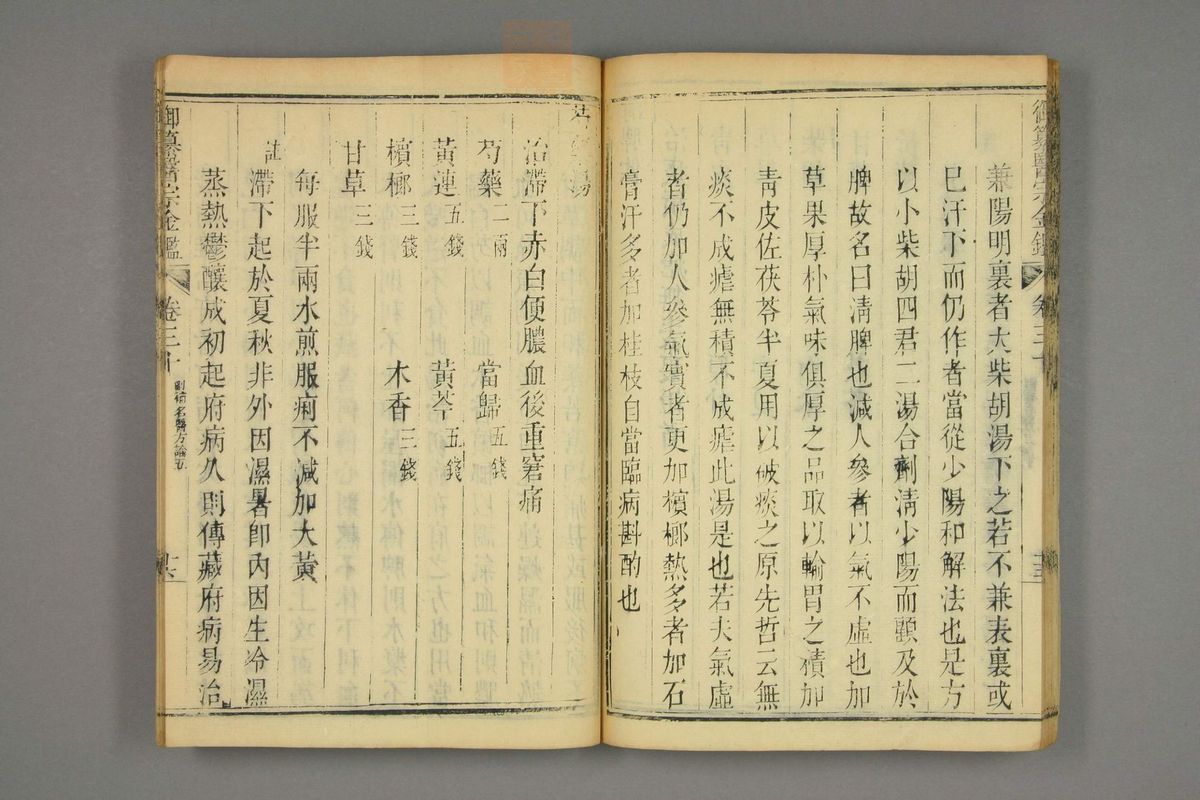 御纂醫宗金鑑 卷三十 十五
兼陽明裏者大柴胡湯下之若不兼表裏或
已汗下而仍作者當從少陽和解法也是方
以小柴胡四君二湯合劑淸少陽而顧及於
脾故名曰淸脾也減人參者以氣不虛也加
草果厚朴氣味俱厚之品取以輸胃之積加
靑皮佐茯苓半夏用以破痰之原先哲云無
痰不成瘧無積不成瘧此湯是也若夫氣虛
者仍加人參氣實者更加檳榔熱多者加石
膏汗多者加桂枝自當臨病斟酌也
湯
治滯下赤白便膿血後重窘痛
芍藥二兩 當歸五錢
黃連五錢 黃芩五錢
檳榔三錢 木香三錢
甘草三錢
每服半兩水煎服痢不減加大黃
註 滯下起於夏秋非外因濕暑卽內因生冷濕
蒸熱鬱釀成初起府病久則傳藏府病易治
御纂醫宗金鑑 卷三十 刪補名醫方論五 十六